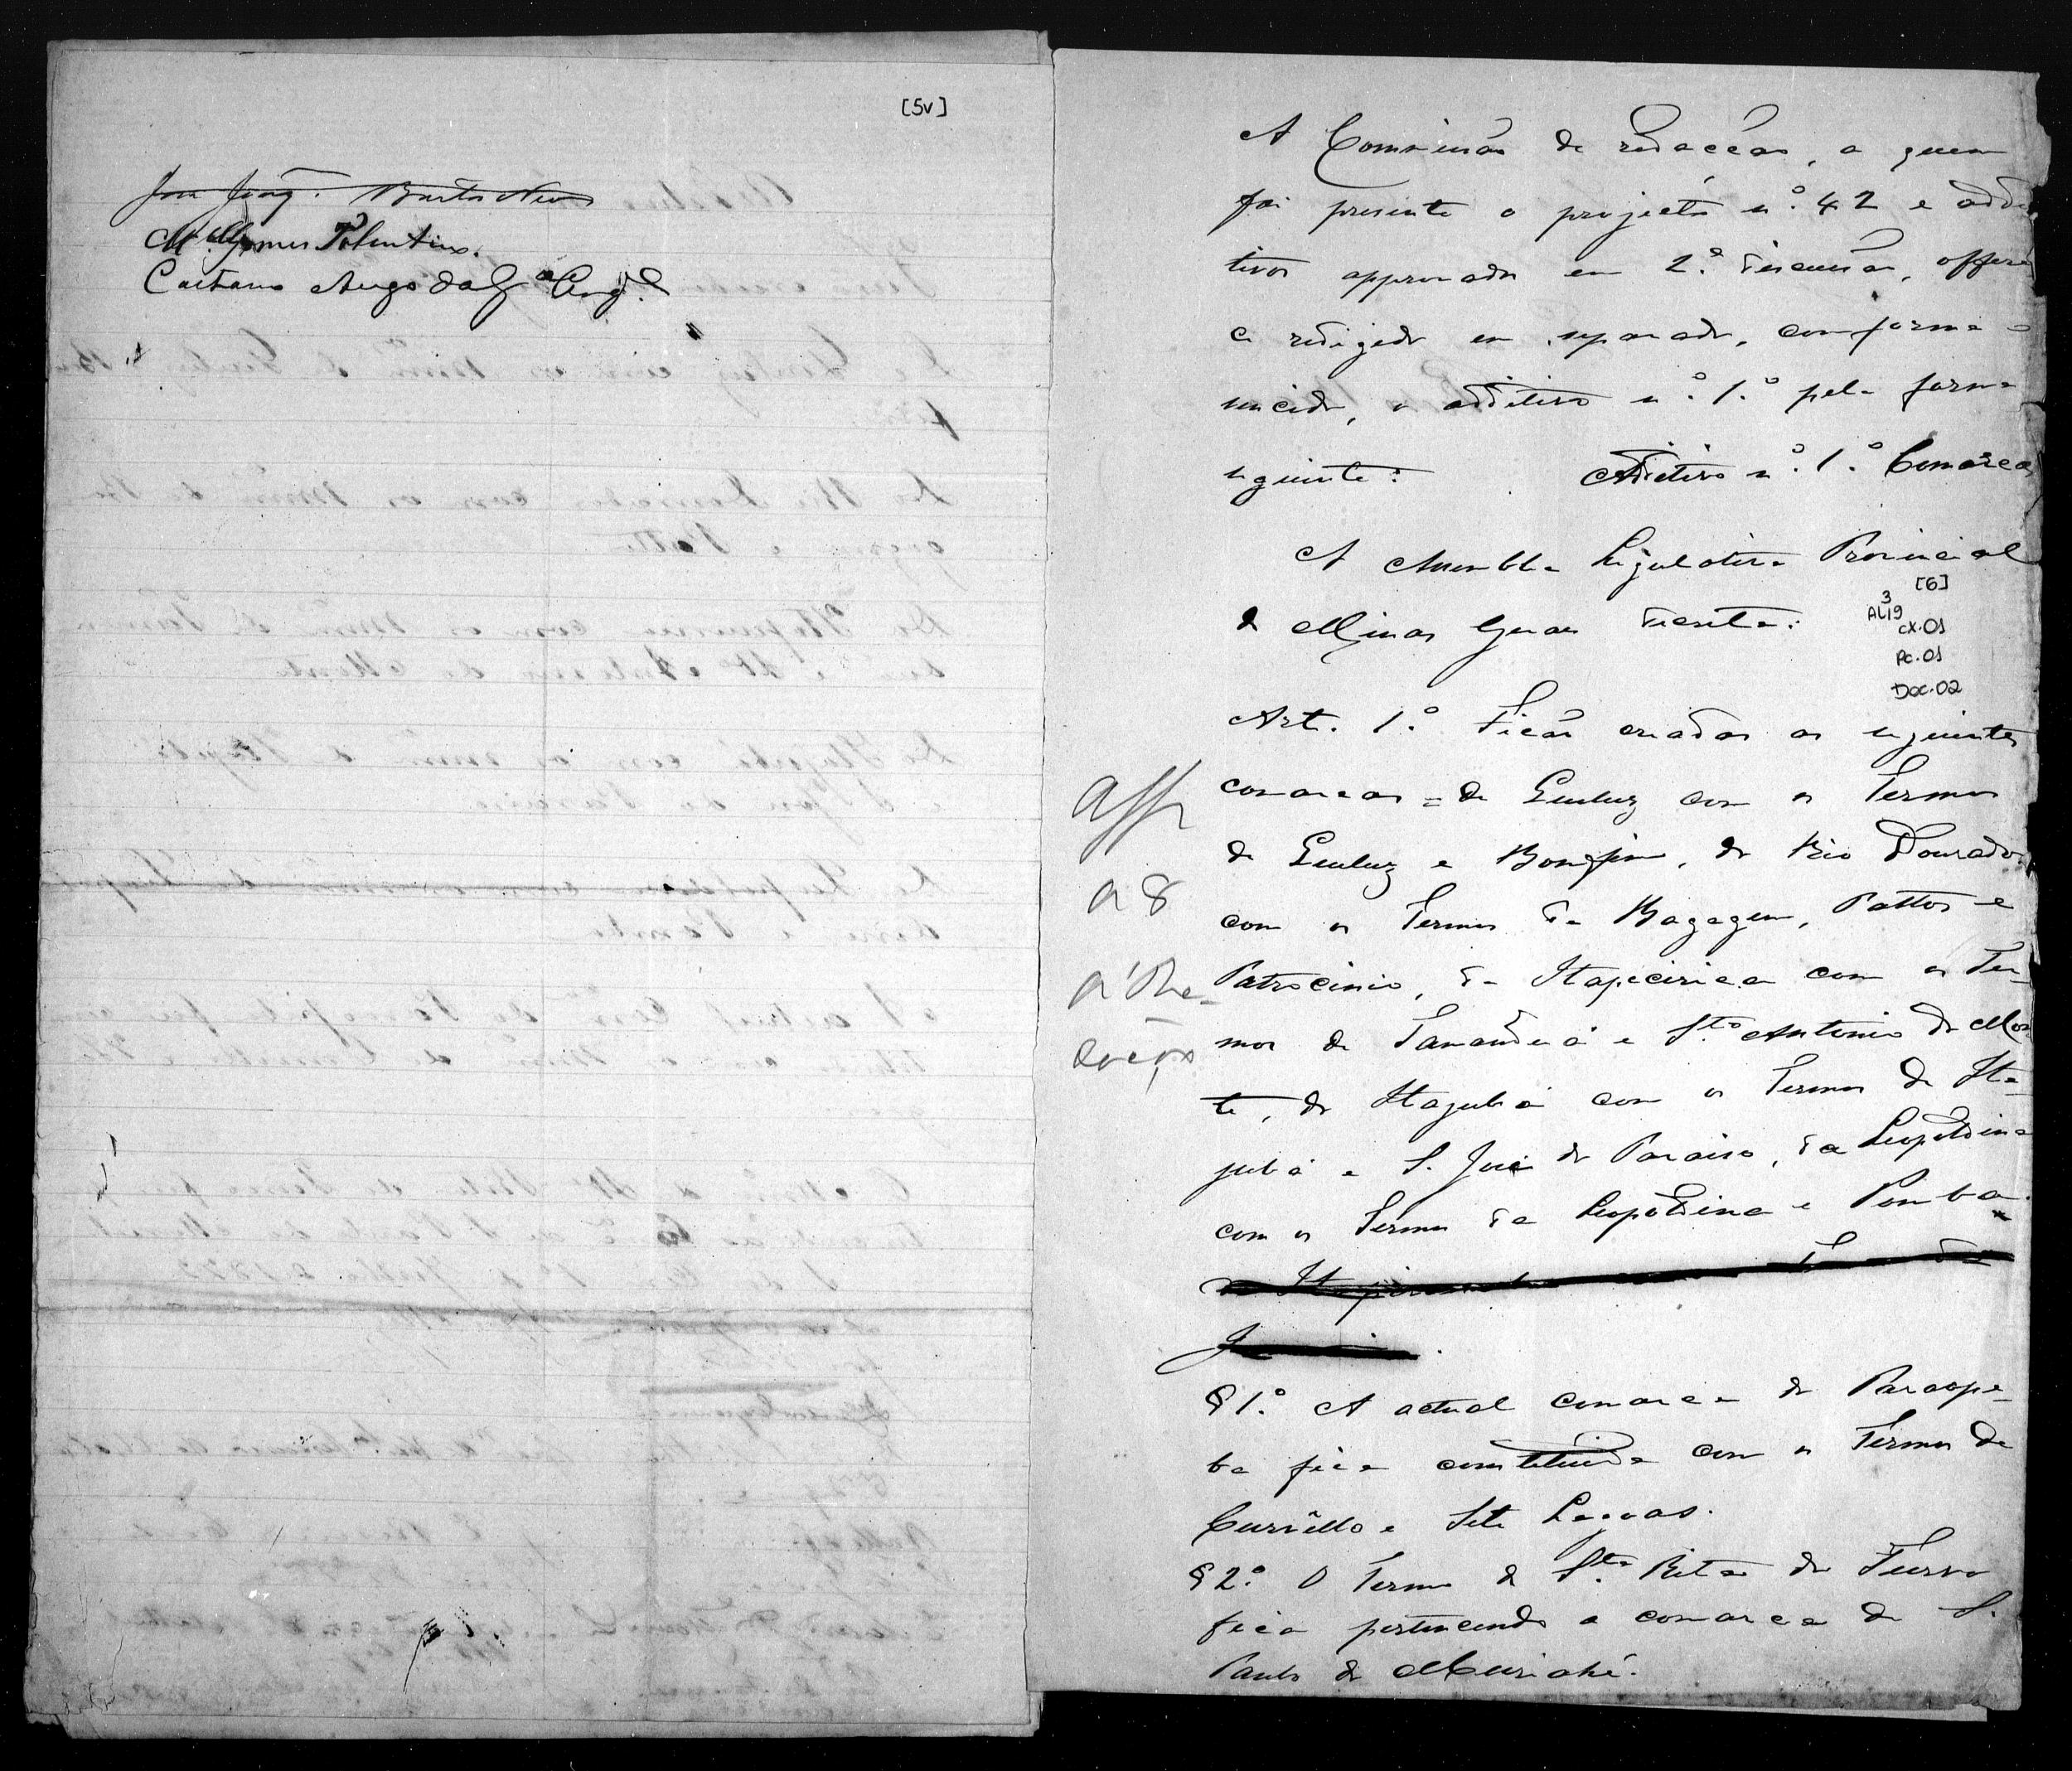 [5v]
José Joaq.m Baeta Neves
M. Gomes Tolentino.
Caetano Augo da Ga
A Commissão de redacção, a quem
foi presente o projecto n.º 42 e addi
tivos approvados em 2.ª discussão, offere
ce redigido em separado, conforme o
vencido, o additivo n.º 1.º pela forma
seguinte: Additivo n.º 1.º Comarcas
A Assemblea Legislativa Provincial
de Minas Geraes decreta:
[6]
3
AL19
CX.01
Pc.01
Doc.02
Art. 1.º Ficão creadas as seguintes
comarcas = de Queluz com os Termos
de Queluz e Bomfim, do Rio Dourado
com os Termos da Bagagem, Pattos e
Patrocinio, da Itapecirica com os Ter-
mos de Tamanduá e Sto Antonio do Mon
te, de Itajubá com os Termos de Ita-
jubá e S. José do Paraiso, da Leopoldina
com os Termos da Leopoldina e Pomba.
§ 1.º A actual comarca do Paraope-
ba fica constituida com os Termos de
Curvêllo e Sete Lagoas.
§ 2.º O Termo de Sta Rita do Turvo
fica pertencendo a comarca de S.
Paulo do Muriahé.
App
a 8
á Re-
dacção